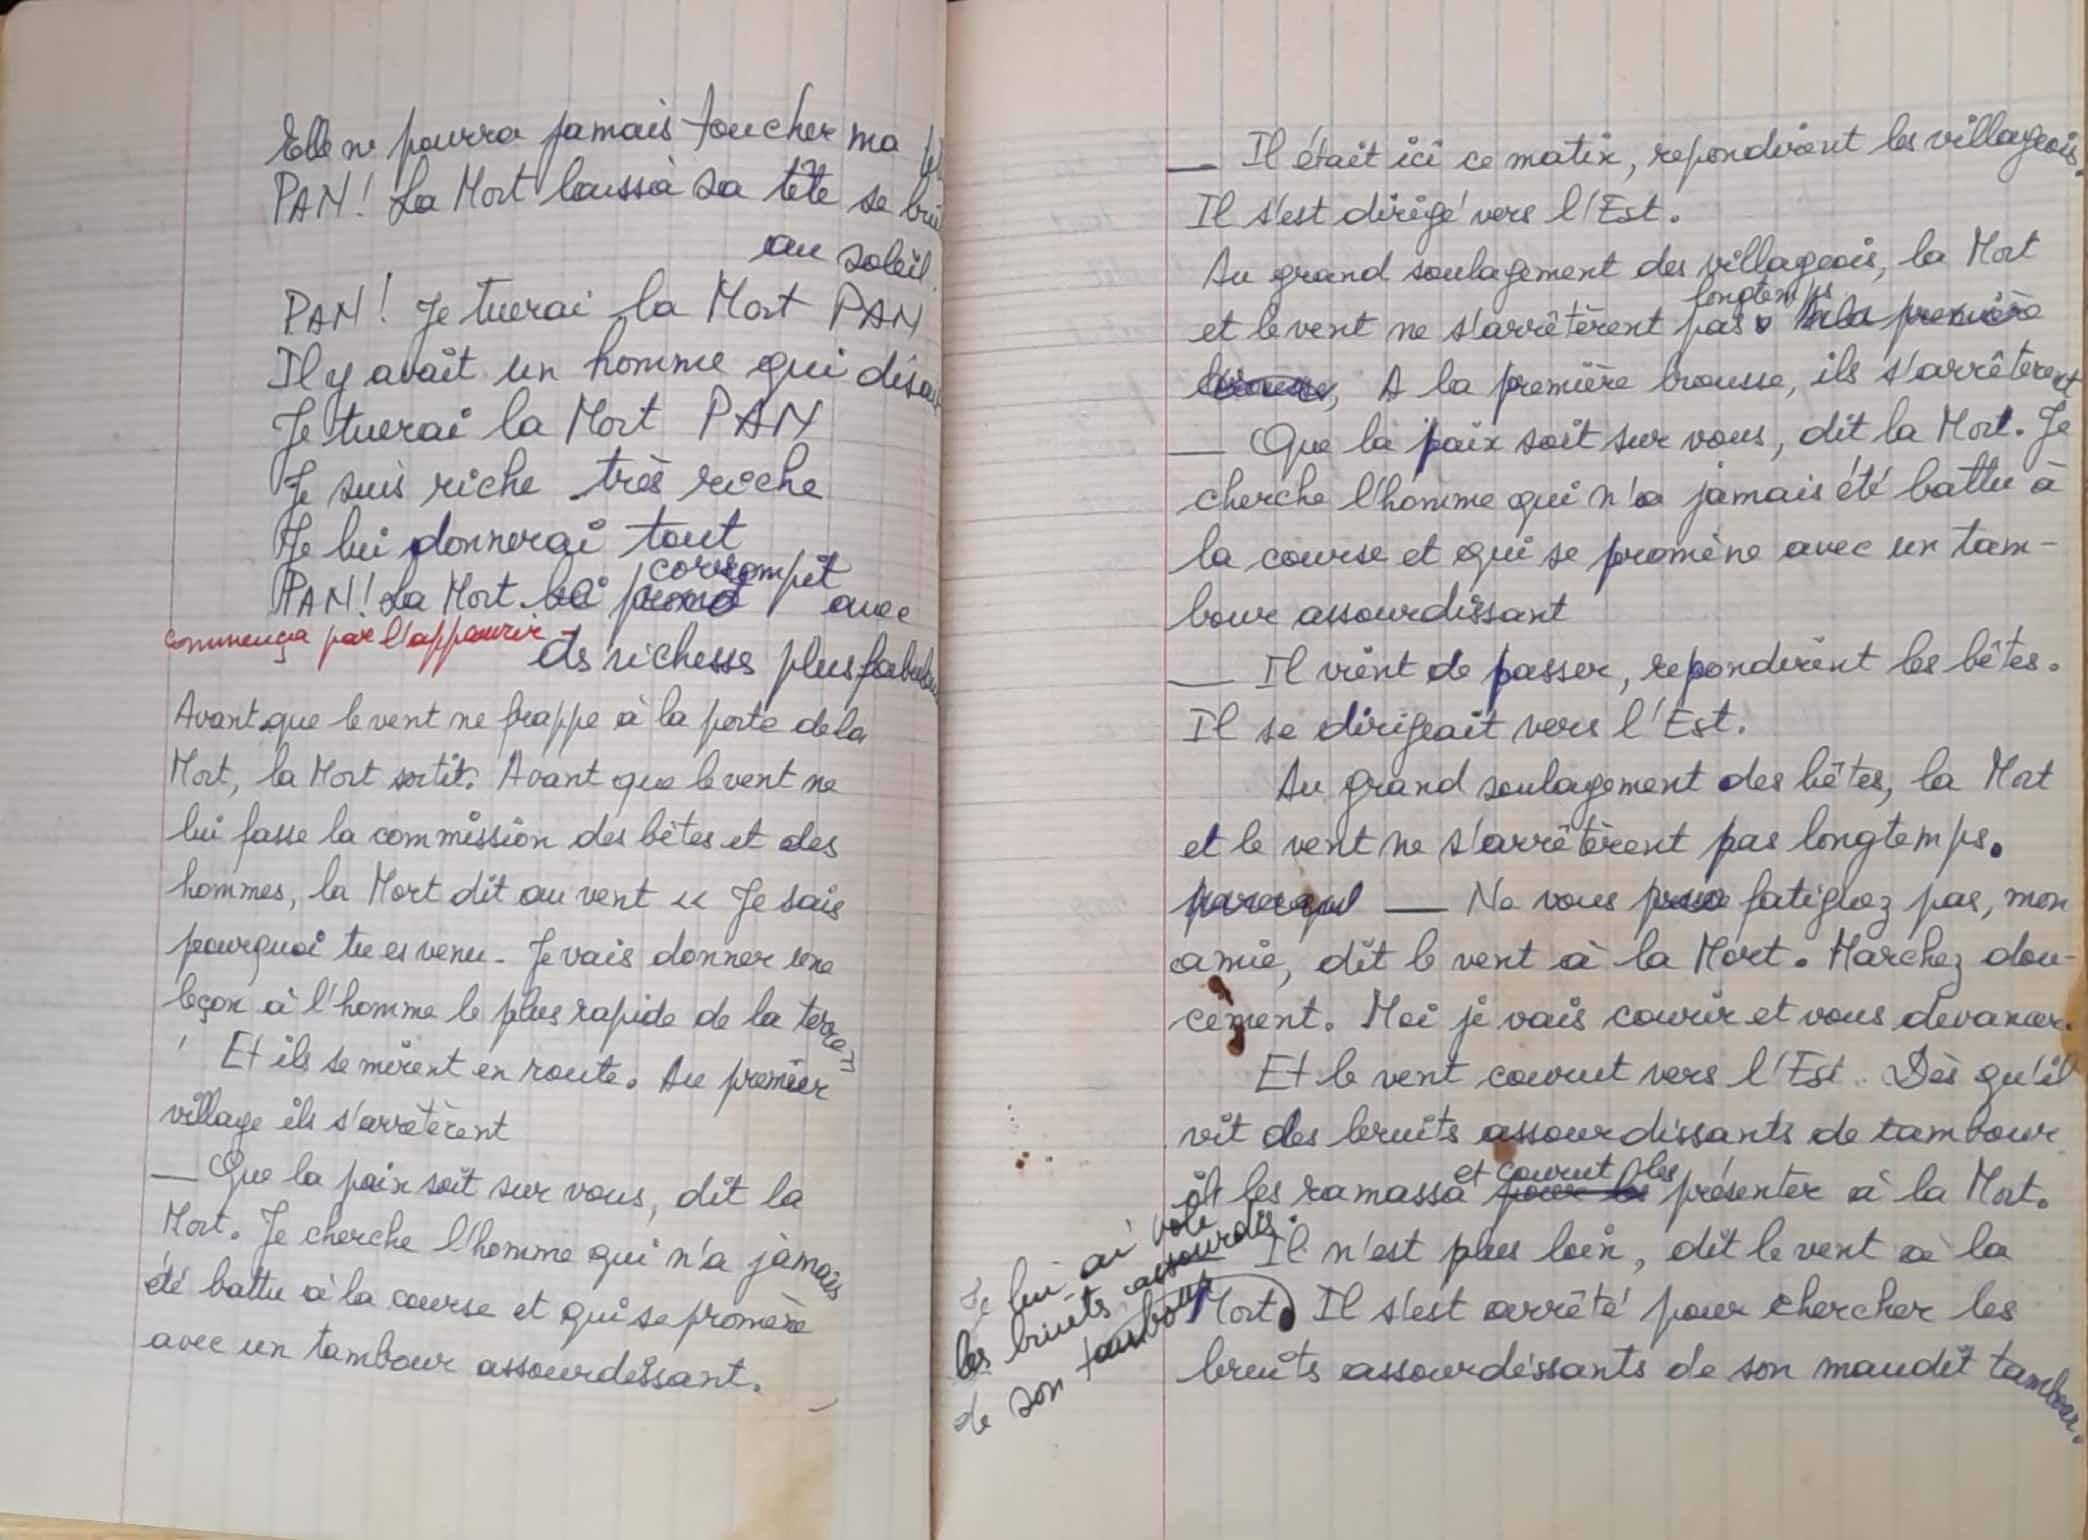 Elle ne pourra jamais toucher ma
PAN! La Mort laissa sa tête se
au soleil.
PAN! Je tuerai la Mort PAN
Il y avait un homme qui
Je tuerai la Mort PAN
Je suis riche très riche
Je lui donnerai tout
corrompit
PAN! La Mort lui promit avec
commença par l'appauvrir
des richesses plus
Avant que le vent ne frappe à la porte de la
Mort, la Mort sortit. Avant que le vent ne
lui fasse la commission des bêtes et des
hommes, la Mort dit au vent « Je sais
pourquoi tu es venu. Je vais donner une
leçon à l'homme le plus rapide de la terre»
Et ils se mirent en route. Au premier
village ils s'arrêtèrent
— Que la paix soit sur vous, dit la
Mort. Je cherche l'homme qui n'a jamais
été battu à la course et qui se promène
avec un tambour assourdissant.
— Il était ici ce matin, repondirent les villageois.
Il s'est dirigé vers l'Est.
Au grand soulagement des villageois, la Mort
longtemps
et le vent ne s'arrêtèrent pas. A la première
brousse, A la première brousse, ils s'arrêtèrent
— Que la paix soit sur vous, dit la Mort. Je
cherche l'homme qui n'a jamais été battu à
la course et qui se promène avec un tam-
bour assourdissant
— Il vient de passer, repondirent les bêtes.
Il se dirigeait vers l'Est.
Au grand soulagement des bêtes, la Mort
et le vent ne s'arrêtèrent pas longtemps.
— Ne vous fatiguez pas, mon
amie, dit le vent à la Mort. Marchez dou-
cement. Moi je vais courir et vous devancer.
Et le vent courut vers l'Est. Dès qu'il
vit des bruits assourdissants de tambour
et courut les
il les ramassa pour les présenter à la Mort.
Il n'est plus loin, dit le vent à la
Mort. Il s'est arrêté pour chercher les
bruits assourdissants de son maudit tambour.
Je lui ai volé
les bruits assourdis.
de son tambour